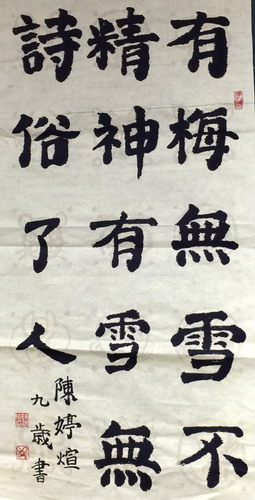 有梅無雪不
精神有雪無
詩俗了人
陳婷煊
九歲書